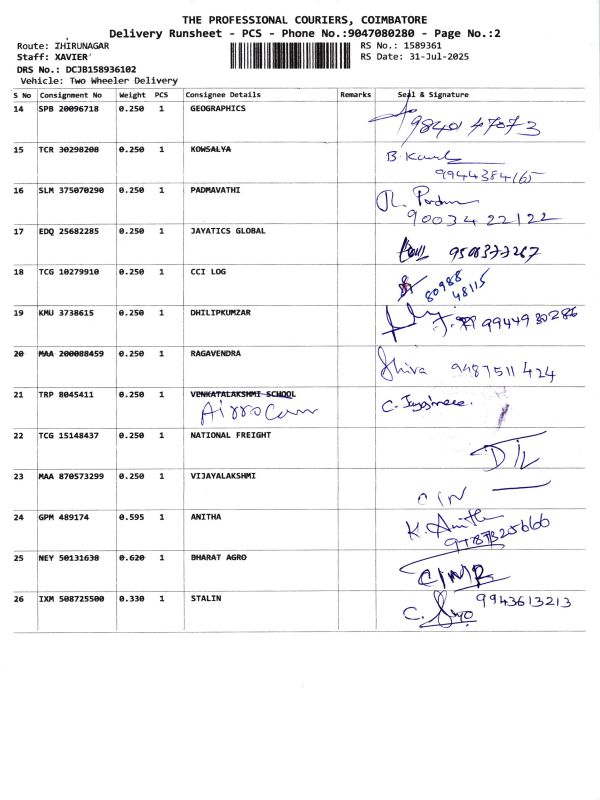 THE PROFESSIONAL COURIERS, COIMBATORE
Delivery Runsheet - PCS - Phone No.:9047080280 - Page No.:2
Route: IHIRUNAGAR
RS No.: 1589361
Staff: XAVIER
RS Date: 31-Jul-2025
DRS No.: DCJB158936102
Vehicle: Two Wheeler Delivery
S No Consignment No Weight PCS Consignee Details Remarks Seal & Signature
14 SPB 20096718 0.250 1 GEOGRAPHICS
98401 47073
15 TCR 30298208 0.250 1 KOWSALYA
9944384165
16 SLM 375070290 0.250 1 PADMAVATHI
90034 22122
17 EDQ 25682285 0.250 1 JAYATICS GLOBAL
9508373267
18 TCG 10279910 0.250 1 CCI LOG
80988
48115
19 KMU 3738615 0.250 1 DHILIPKUMZAR
9944930286
20 MAA 200088459 0.250 1 RAGAVENDRA
Shiva 9487511424
21 TRP 8045411 0.250 1 VENKATALAKSHMI SCHOOL
22 TCG 15148437 0.250 1 NATIONAL FREIGHT
23 MAA 870573299 0.250 1 VIJAYALAKSHMI
24 GPM 489174 0.595 1 ANITHA
K. Anitha
25 NEY 50131638 0.620 1 BHARAT AGRO
26 IXM 508725500 0.330 1 STALIN
9943613213